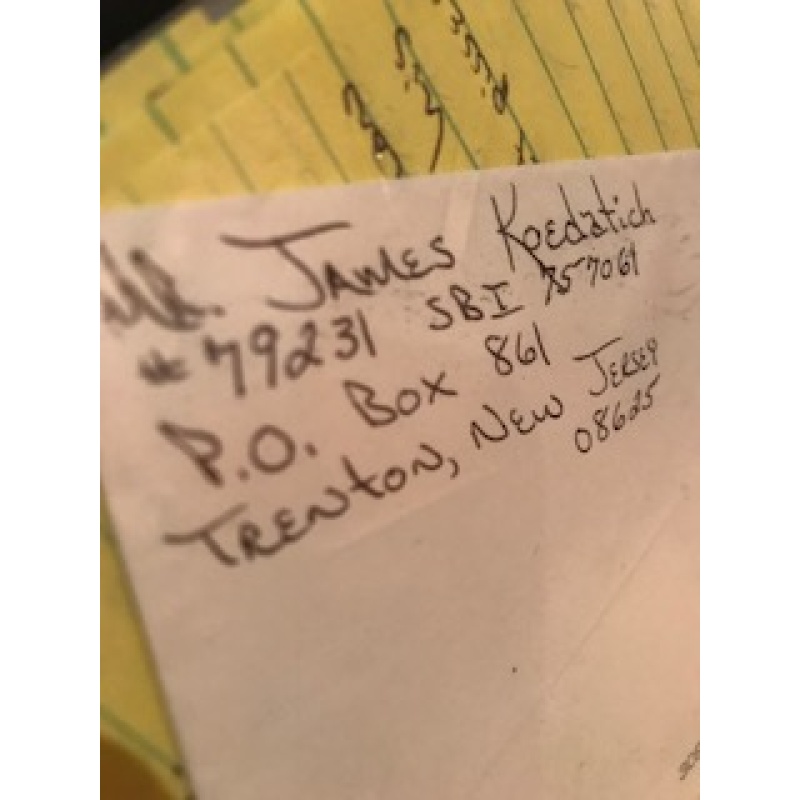 MR. JAMES Koedatich
#79231 SBI 757061
P.O. Box 861
TRENTON, NEW JERSEY
08625